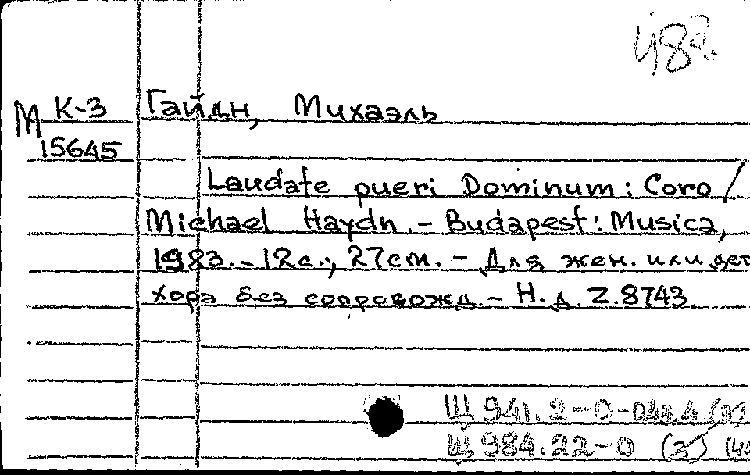 482.
М К-3 Гайдн, Михаэль
15645
Laudate pueri Dominum: Coro /
Michael Haydn. - Budapest: Musica,
1983. - 12с.; 27см. - Для жен. или дет
хора без сопровожд. - Н.д. Z.8743
Щ 941.2-0-
Щ 984.22-0 (3)